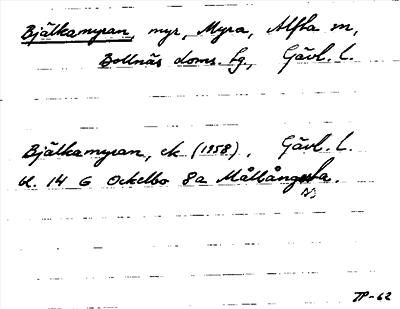 Bjälkamyran, myr, Myra, Alfta sn,
Bollnäs doms. sg., Gävl. l.
Bjälkamyran, ek. (1958), Gävl. l.
bl. 14 G Ockelbo 8a Mållångsta.
TP-62